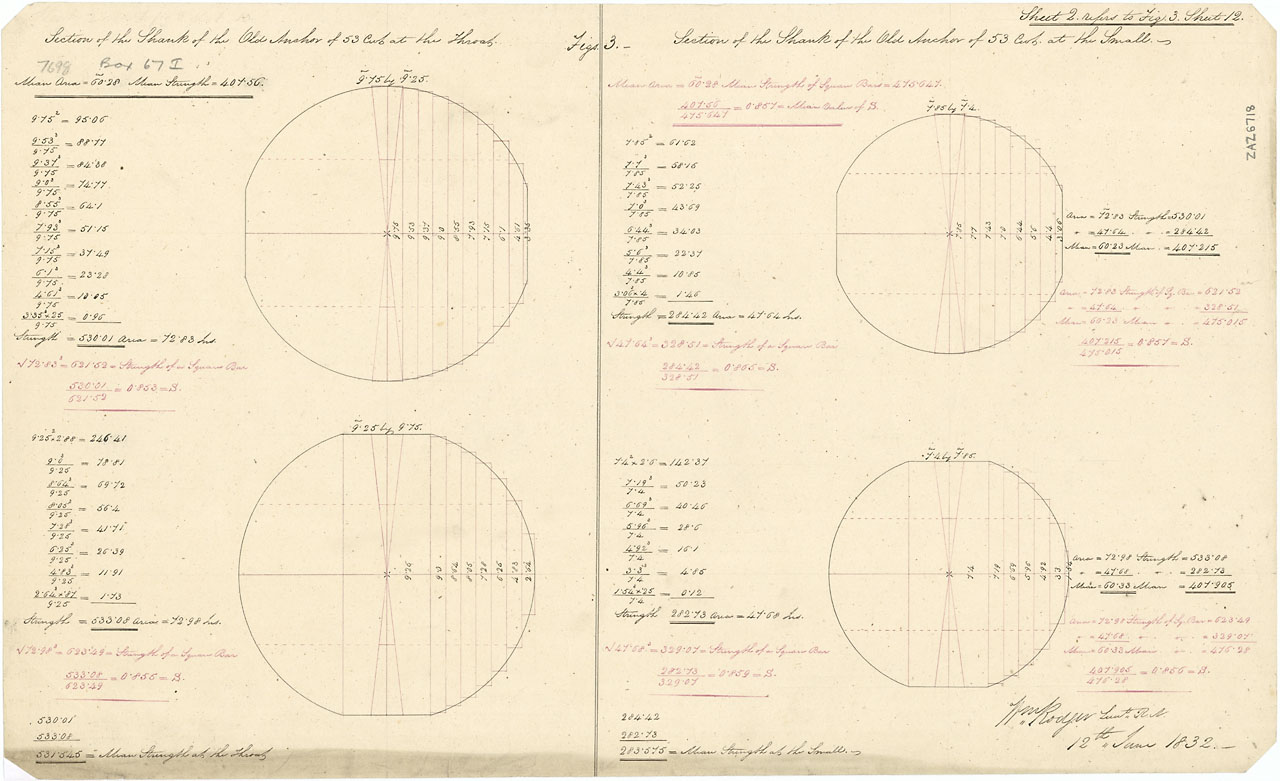 Sheet 2. refers to Fig. 3. Sheet 12.
Section of the Shank of the Old Anchor of 53 Cwt. at the Throat.
Figs. 3.
7698 Box 67 I
Mean Area = 60.28 Mean Strength = 407.56.
9.75 by 9.25.
9.75² = 95.06
9.53³/9.75 = 88.77
9.37³/9.75 = 84.38
9.0³/9.75 = 74.77
8.55³/9.75 = 64.1
7.93³/9.75 = 51.15
7.15³/9.75 = 37.49
6.1³/9.75 = 23.28
4.61³/9.75 = 10.05
3.35³×25/9.75 = 0.96
Strength = 530.01 Area = 72.83 Ins.
√72.83³ = 621.52 = Strength of a Square Bar
530.01/621.52 = 0.853 = B.
9.75 9.53 9.37 9.0 8.55 7.93 7.15 6.1 4.61 3.35
9.25 by 9.75.
9.25²×2.88 = 246.41
9.0³/9.25 = 78.81
8.64³/9.25 = 69.72
8.05³/9.25 = 56.4
7.28³/9.25 = 41.71
6.25³/9.25 = 26.39
4.83³/9.25 = 11.91
Strength = 533.08 Area = 72.98 Ins.
√72.98³ = 623.49 = Strength of a Square Bar
533.08/623.49 = 0.855 = B.
9.25 9.0 8.64 8.05 7.28 6.25
530.01
533.08
531.545 = Mean Strength at the Throat
Section of the Shank of the Old Anchor of 53 Cwt. at the Small.
Mean Area = 60.28 Mean Strength of Square Bars = 475.647.
407.56/475.647 = 0.857 = Mean Value of B.
7.85 by 7.4.
7.85² = 61.62
7.7³/7.85 = 58.16
7.43³/7.85 = 52.25
7.0³/7.85 = 43.69
6.44³/7.85 = 34.03
5.6³/7.85 = 22.37
4.4³/7.85 = 10.85
3.06³×.4/7.85 = 1.46
Strength = 284.42 Area = 47.64 Ins.
√47.64³ = 328.51 = Strength of a Square Bar
284.42/328.51 = 0.865 = B.
7.85 7.7 7.43 7.0 6.44 5.6 4.4 3.06
Area = 72.83 Strength = 530.01
" = 47.64 " = 284.42
Mean = 60.23 Mean = 407.215
Area = 72.83 Strength of Sq. Bar = 621.52
" = 47.64 " = 328.51
Mean = 60.23 Mean = 475.015
407.215/475.015 = 0.857 = B.
7.4 by 7.85.
7.4²×2.6 = 142.37
7.19³/7.4 = 50.23
6.69³/7.4 = 40.46
5.96³/7.4 = 28.6
4.92³/7.4 = 16.1
3.3³/7.4 = 4.85
1.54³×25/7.4 = 0.12
Strength = 282.73 Area = 47.68 Ins.
√47.68³ = 329.07 = Strength of a Square Bar
282.73/329.07 = 0.859 = B.
7.4 7.19 6.69 5.96 4.92 3.3 1.54
Area = 72.98 Strength = 533.08
" = 47.68 " = 282.73
Mean = 60.33 Mean = 407.905
Area = 72.98 Strength of Sq. Bar = 623.49
" = 47.68 " = 329.07
Mean = 60.33 Mean = 476.28
407.905/476.28 = 0.856 = B.
284.42
282.73
283.575 = Mean Strength at the Small.
Wm. Rodger Lieut. R.N.
12th June 1832.
ZAZ6718